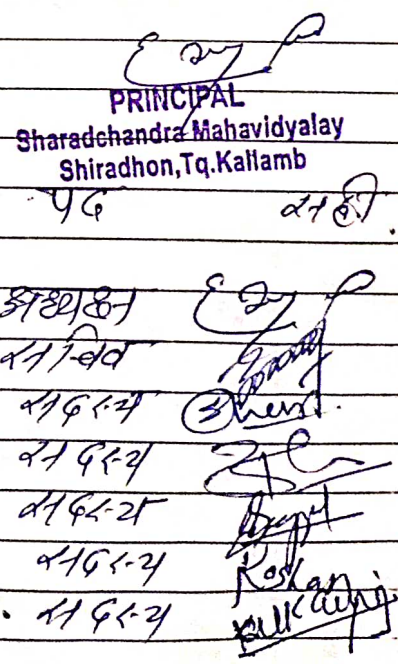 PRINCIPAL
Sharadchandra Mahavidyalay
Shiradhon,Tq.Kallamb
पद सही
अध्यक्ष
सचिव
सदस्य
सदस्य
सदस्य
सदस्य Roshan
सदस्य